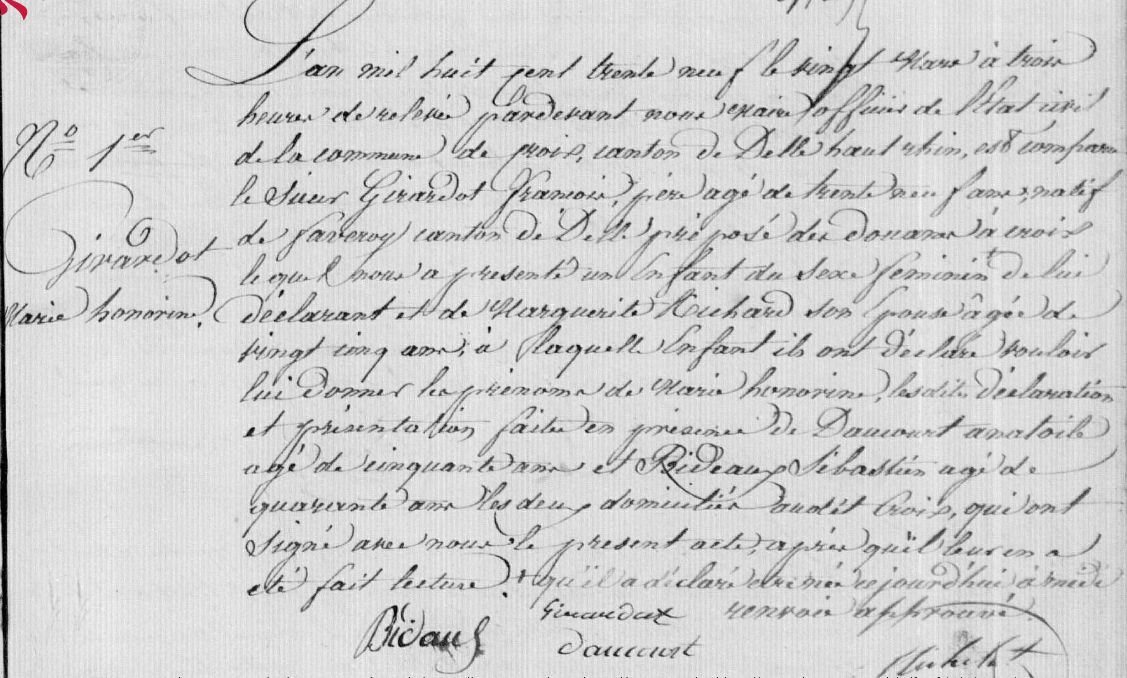 L'an mil huit cent trente neuf le vingt Mars à trois
heures de relevée pardevant nous Maire officier de l'Etat civil
de la commune de Croix, canton de Delle haut rhin, est comparu
le Sieur Girardot François, père agé de trente neuf ans, natif
de faveroy canton de Delle préposé des douanes à Croix
lequel nous a présenté un Enfant du sexe féminin + de lui
déclarant et de Marguerite Richard son Epouse âgée de
vingt cinq ans, à laquelle Enfant ils ont déclaré vouloir
lui donner les prénoms de Marie honorine, lesdites déclaration
et présentation faites en présence de Daucourt anatoile
agé de cinquante ans et Bideaux Sébastien agé de
quarante ans les deux domiciliés audit Croix, qui ont
signé avec nous le présent acte, après qu'il leur en a
été fait lecture. + qu'il a déclaré être née cejourd'hui à midi
renvoi approuvé.
N° 1er
Girardot
Marie honorine.
Bidaux
Girardot
Daucourt